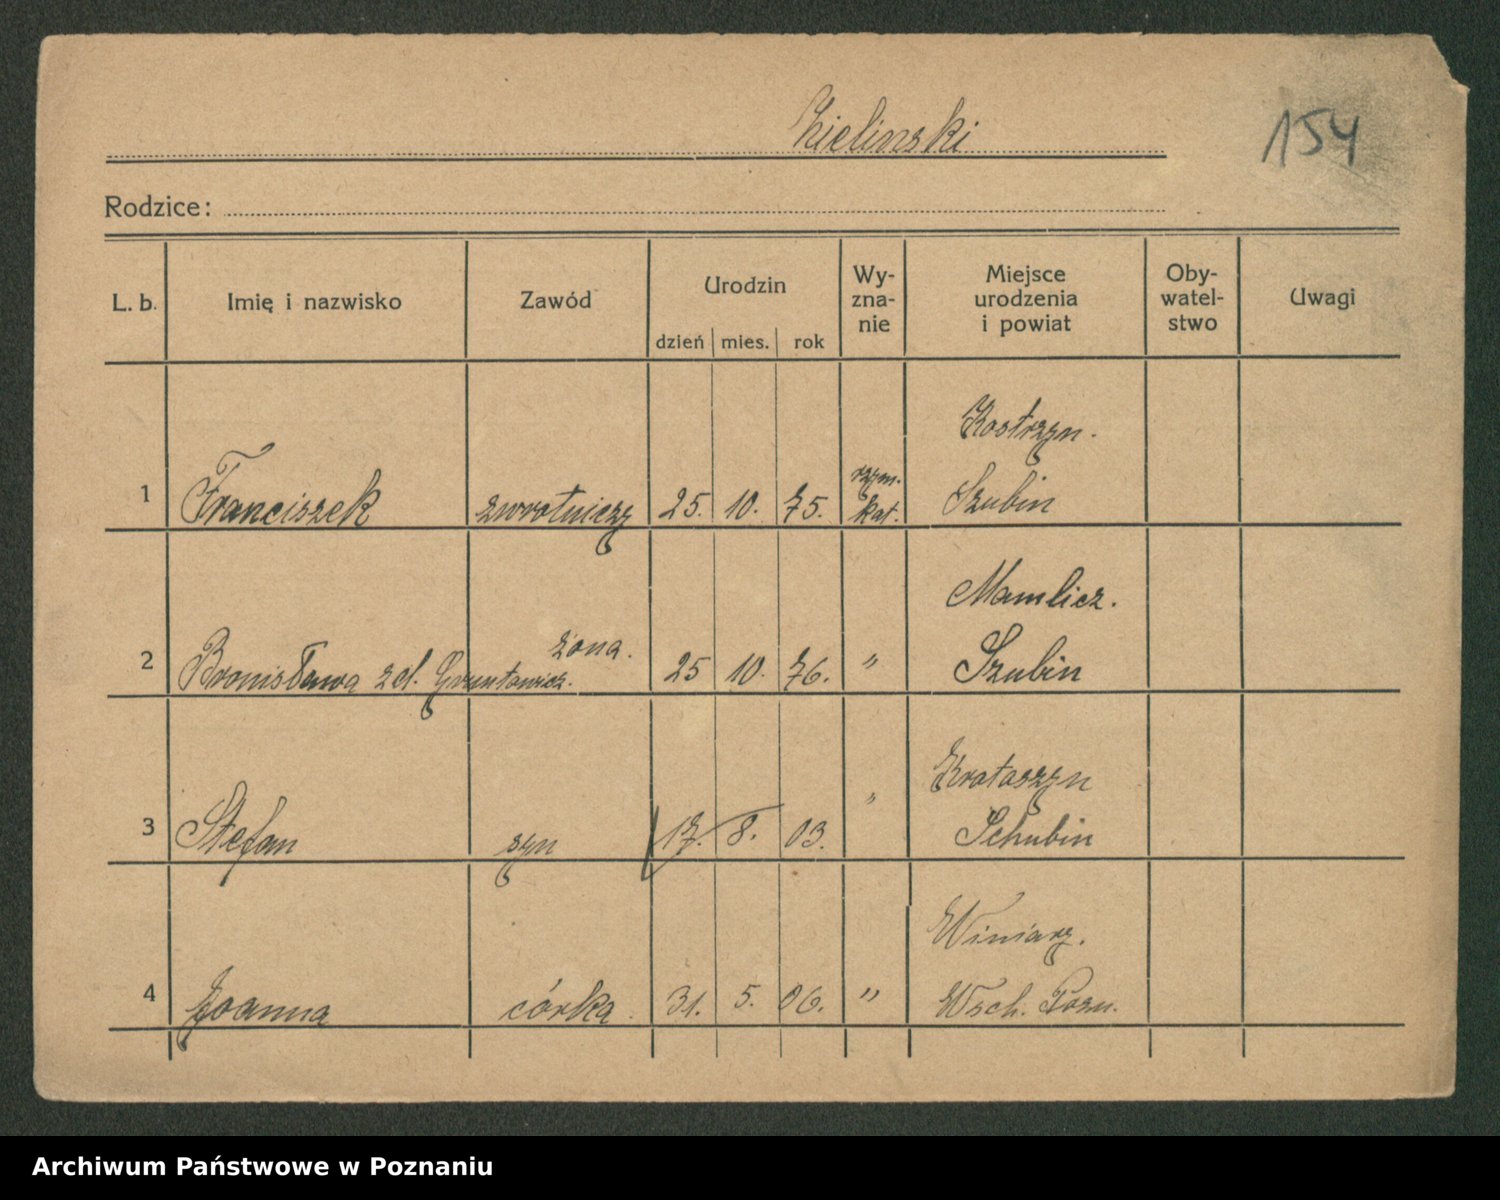 Zielinski
154
Rodzice:
L. b.
Imię i nazwisko
Zawód
Urodzin
dzień mies. rok
Wy-
zna-
nie
Miejsce
urodzenia
i powiat
Oby-
watel-
stwo
Uwagi
Kostrzyn.
1 Franciszek zwrotniczy 25. 10. 75. rzym. kat. Szubin
Mamlicz.
żona.
2 Bronisława zd. 25 10. 76. " Szubin
3 Stefan syn 17. 8. 03. " Schubin
Winiary.
4 Joanna córka. 31. 5. 06. " Wsch. Pozn.
Archiwum Państwowe w Poznaniu